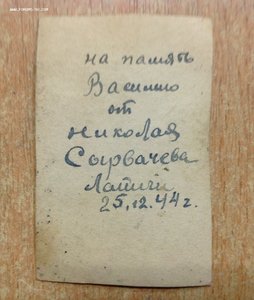 на память
Василию
от
Николая
Сырвачева
Латичи
25.12.44 г.